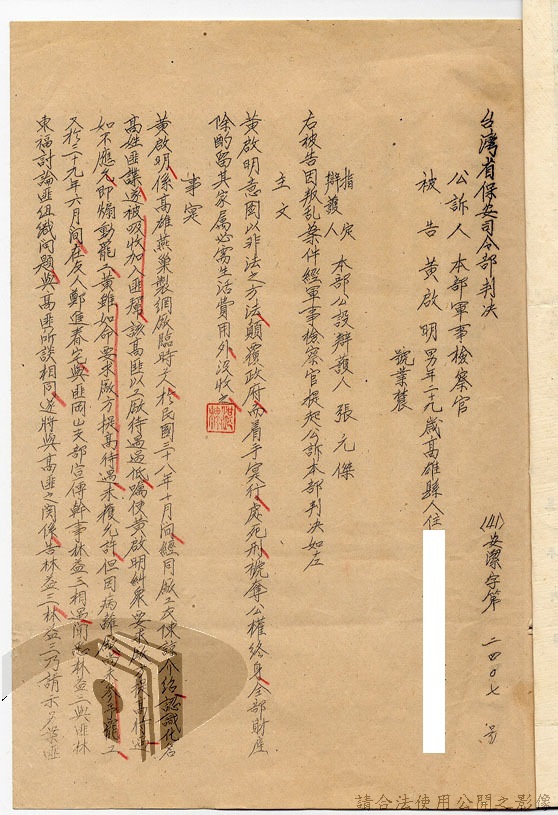 台灣省保安司令部判決
(41)安潔字第二四〇七號
公訴人本部軍事檢察官
被告黃啟明男年二十九歲高雄縣人住
號業農
指定
辯護人本部公設辯護人張元傑
右被告因叛乱案件經軍事檢察官提起公訴本部判決如左
主文
黃啟明意圖以非法之方法顛覆政府而着手实行處死刑褫奪公權終身全部財產
除酌留其家属必需生活費用外沒收之
事实
黃啟明係高雄燕巢製網廠臨時工於民國三十八年十月間經同廠工友陳諒介紹認識化名
高姓匪諜遂被吸收加入匪幫該高匪以工廠待遇過低囑使黃啟明糾眾要求廠方提高待遇
如不應允即煽動罷工黃雖如命要求廠方提高待遇未獲允許但因病離廠而未參予罷工
又於三十九年六月間在友人鄭進春宅與匪岡山支部宣傳幹事林益三相遇聞悉林益三與匪林
東福討論匪組織問題與高匪所談相同遂將與高匪之関係告林益三林益三乃請示匪
請合法使用公開之影像